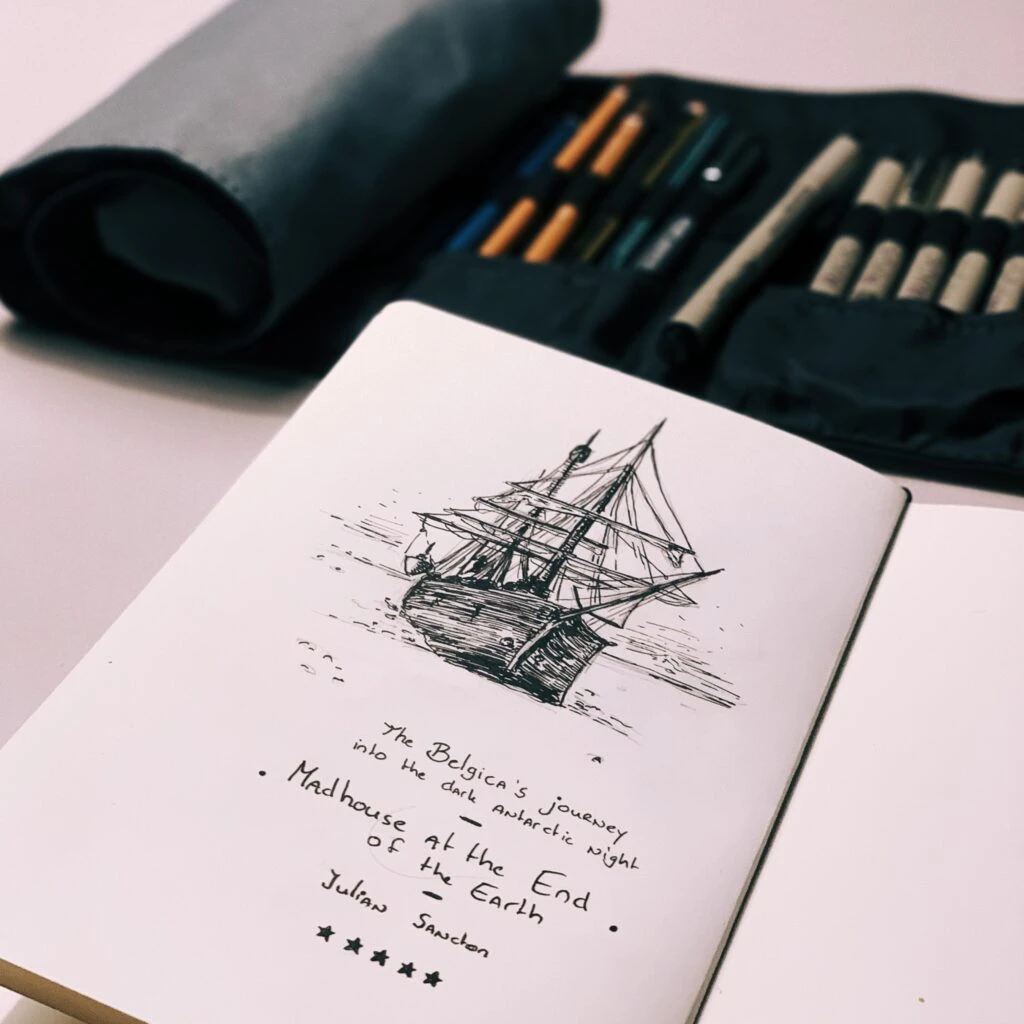 The Belgica's journey
into the dark antarctic night
-
• Madhouse at the End •
of the Earth
-
Julian Sancton
★★★★★